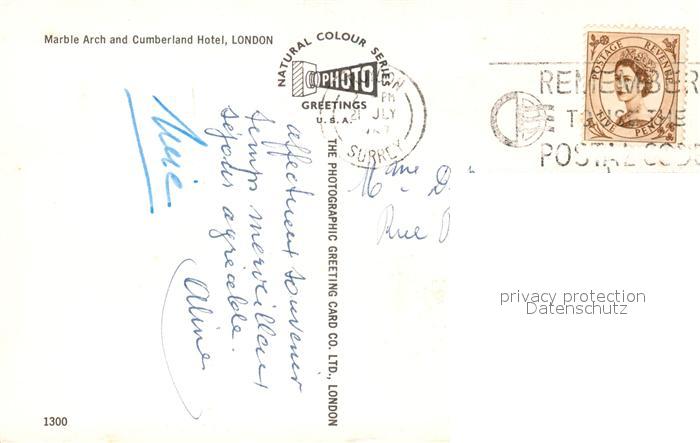 Marble Arch and Cumberland Hotel, LONDON
NATURAL COLOUR SERIES
PHOTO
GREETINGS
U.S.A.
THE PHOTOGRAPHIC GREETING CARD CO. LTD., LONDON
affectueux souvenir
temps merveilleux
séjour agréable.
Aline
PM
21 JLY
SURREY
POSTAGE REVENUE
FIVE PENCE
REMEMBER
TO USE THE
POSTAL CODE
Mme D
Rue
privacy protection
Datenschutz
1300